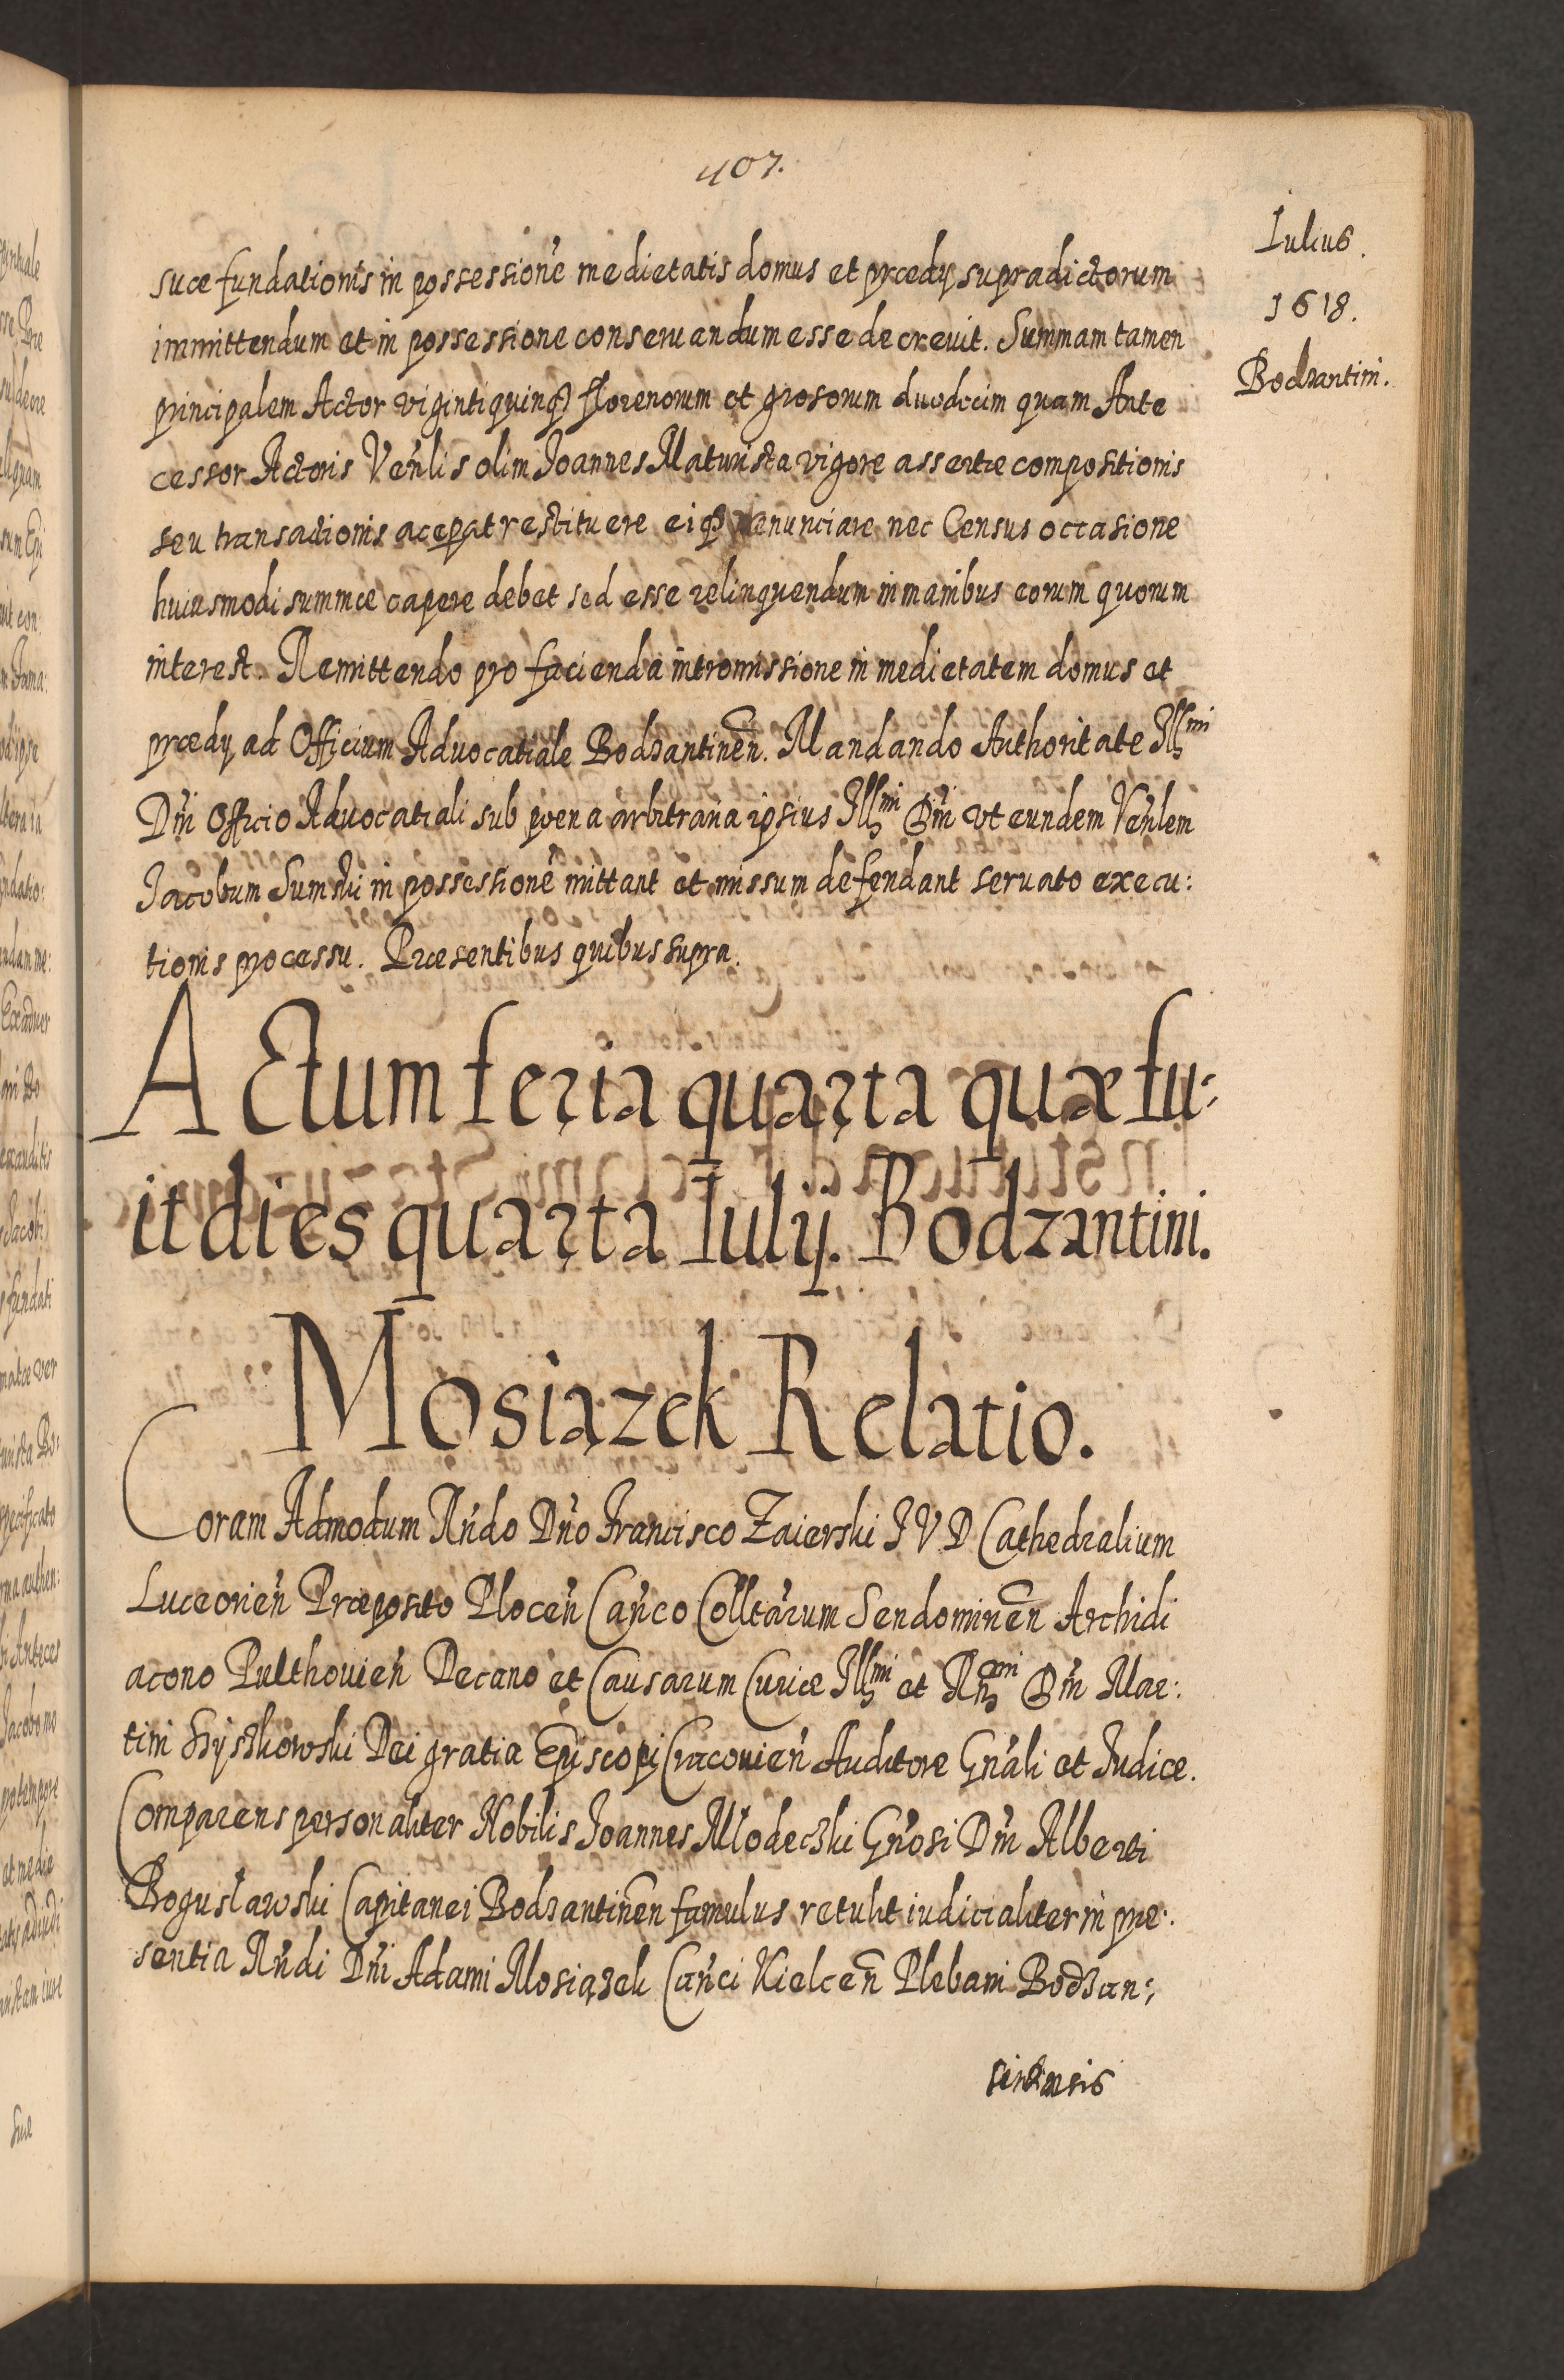 407.
Iulius.
1618.
Bodzantini.
suæ fundationis in possessione medietatis domus et prædij supradictorum
immittendum et in possessione conseruandum esse decrevit. Summam tamen
principalem Actor viginti quinq florenorum et grosorum duodecim quam Ante
cessor Actoris Venlis olim Joannes Maturista vigore assertæ compositionis
seu transactionis acepat restituere eiq renunciare nec Census occasione
huiusmodi summæ capere debet sed esse relinquendum in manibus eorum quorum
interest. Remittendo pro facienda intromissione in medietatem domus et
prædij ad Officium Aduocatiale Bodzantinen. Mandando Authoritate Illmi
Dni Officio Aduocatiali sub poena arbitraria ipsius Illmi Dni vt eundem Venlem
Jacobum Sumski in possessione mittant et missum defendant seruato execu:
tionis processu. Præsentibus quibus supra.
ACtum feria quarta quæ fu:
it dies quarta Iulij. Bodzantini.
Mosiązek Relatio.
Coram Admodum Rndo Dno Francisco Zaierski J V D Cathedralium
Luceorien Præposito Plocen Canco Colltarum Sendominen Archidi
acono Pulthouien Decano et Causarum Curiæ Illmi et Rnmi Dni Mar:
tini Szyszkowski Dei gratia Episcopi Cracouien Auditore Gnali et Judice.
Comparens personaliter Nobilis Joannes Młodeczki Gnosi Dni Alberti
Bogusławski Capitanei Bodzantinen famulus retulit iudicialiter in præ:
sentia Rndi Dni Adami Mosiązek Canci Kielcen Plebani Bodzan: